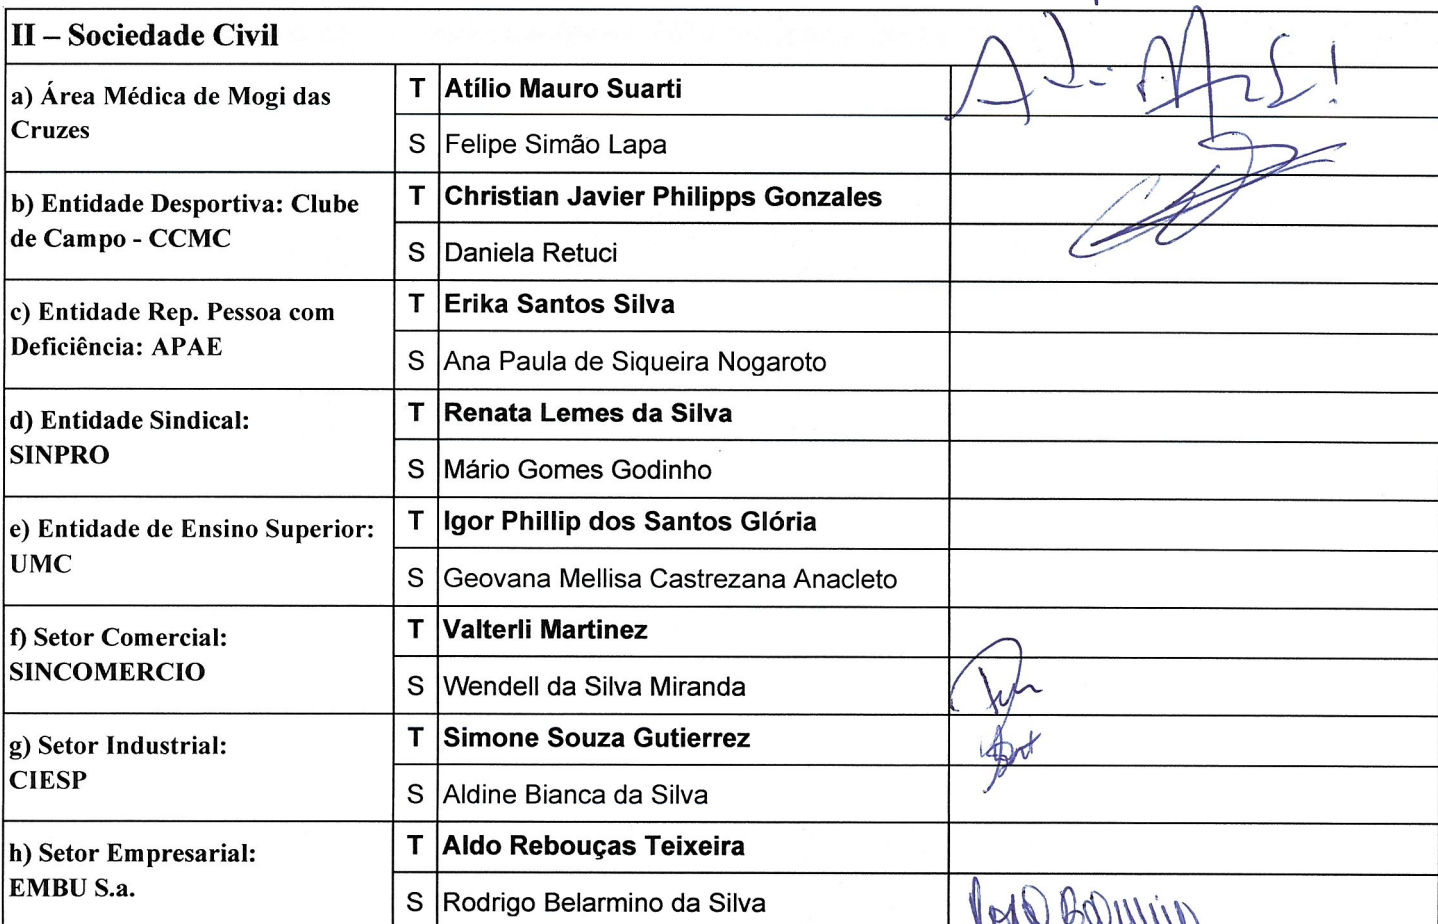 II – Sociedade Civil
a) Área Médica de Mogi das
Cruzes
T Atílio Mauro Suarti
S Felipe Simão Lapa
b) Entidade Desportiva: Clube
de Campo - CCMC
T Christian Javier Philipps Gonzales
S Daniela Retuci
c) Entidade Rep. Pessoa com
Deficiência: APAE
T Erika Santos Silva
S Ana Paula de Siqueira Nogaroto
d) Entidade Sindical:
SINPRO
T Renata Lemes da Silva
S Mário Gomes Godinho
e) Entidade de Ensino Superior:
UMC
T Igor Phillip dos Santos Glória
S Geovana Mellisa Castrezana Anacleto
f) Setor Comercial:
SINCOMERCIO
T Valterli Martinez
S Wendell da Silva Miranda
g) Setor Industrial:
CIESP
T Simone Souza Gutierrez
S Aldine Bianca da Silva
h) Setor Empresarial:
EMBU S.a.
T Aldo Rebouças Teixeira
S Rodrigo Belarmino da Silva